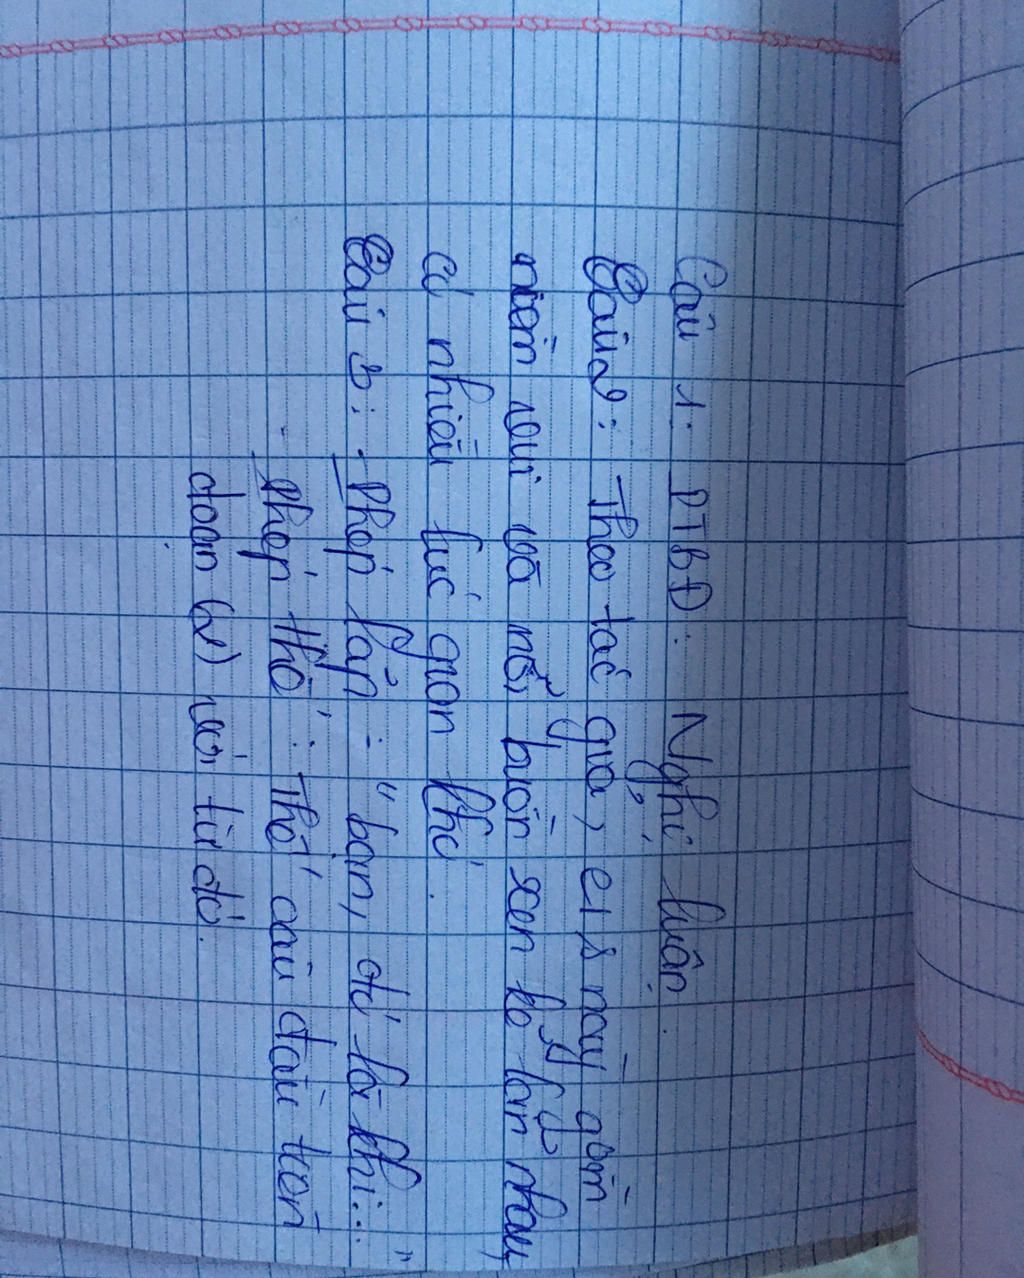 Câu 1: PTBĐ: Nghị luận.
Câu 2: Theo tác giả, c/s này gồm
niềm vui và nỗi buồn xen kẽ lẫn nhau,
có nhiều lúc gian khó.
Câu 3: - Phép lặp: "bạn, đó là khi..."
- Phép thế: Thế câu đầu trên
đoạn (2) với từ đó.